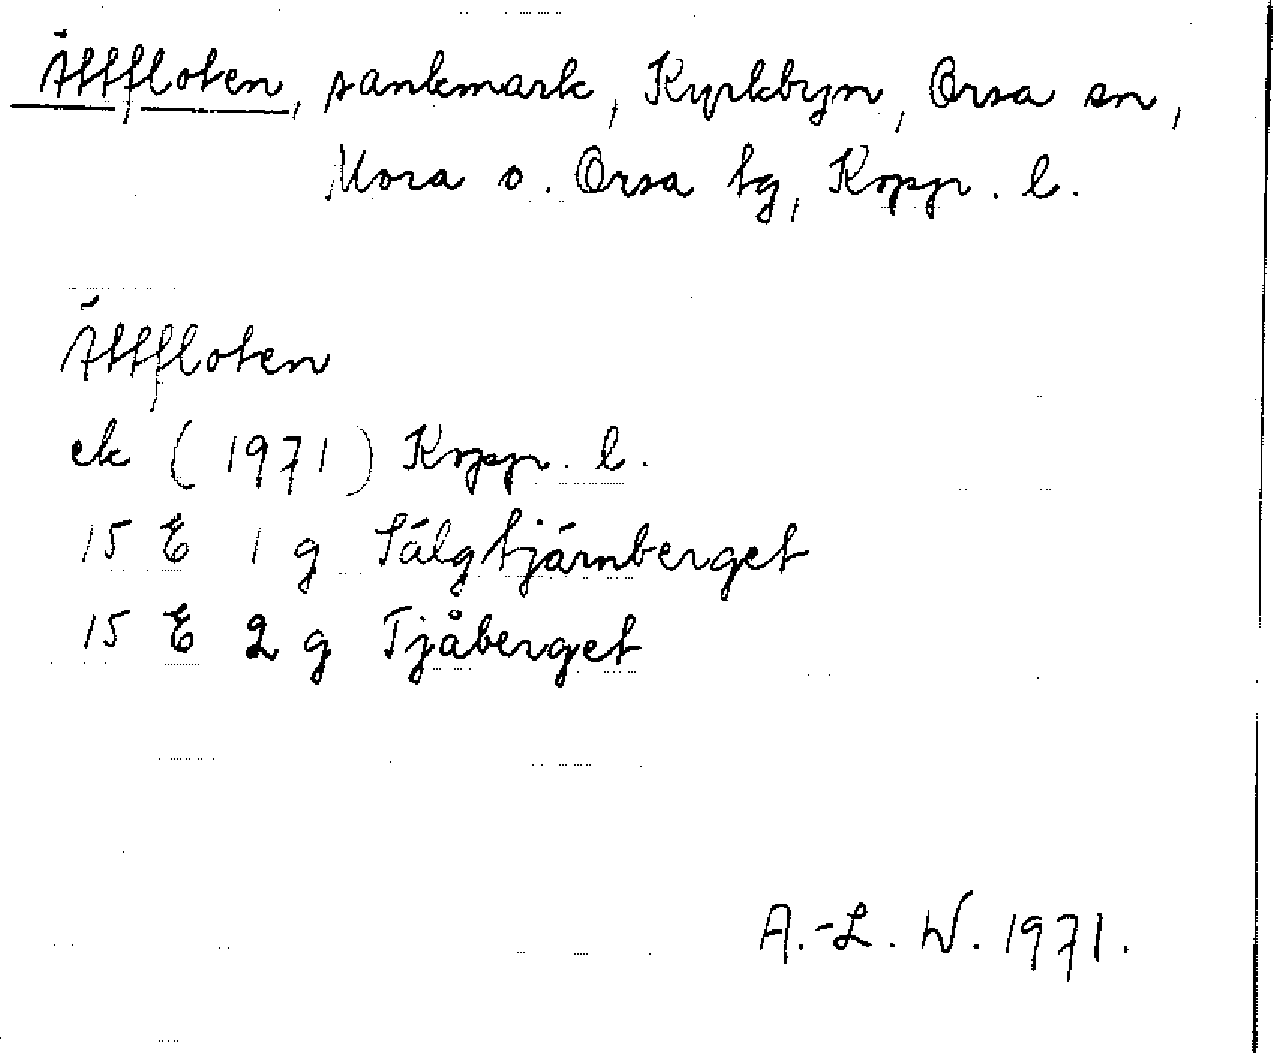 Ättfloten, sankmark, Kyrkbyn, Orsa sn,
Mora o. Orsa tg, Kopp. l.
Ättfloten
ek (1971) Kopp. l.
15 E 1 g Sälgtjärnberget
15 E 2 g Tjåberget
A.-L. W. 1971.